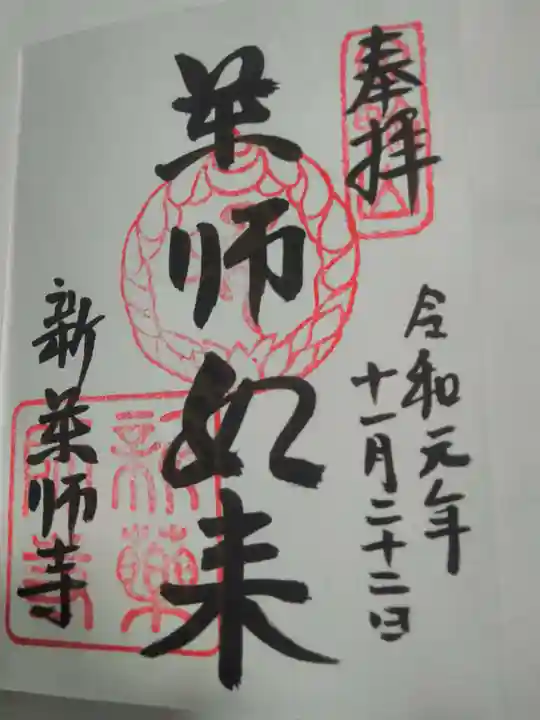 奉拝
令和元年
十一月二十二日
薬师如来
新薬师寺
新薬師寺